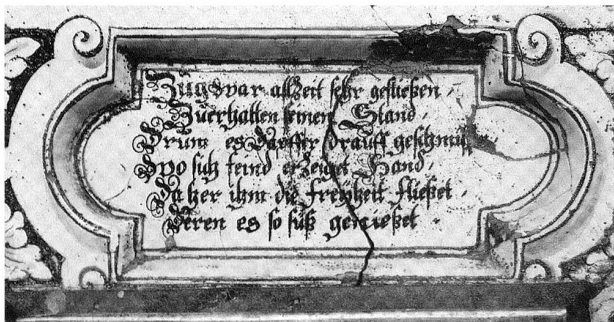 Zug war allzeit sehr gefließen ·
Zuerhalten seinen Stand ·
Drum es dapffer drauff
Wo sich feind erzeiget Hand ·
Daher ihm die Freyheit fließet ·
Deren es so süß genießet ·